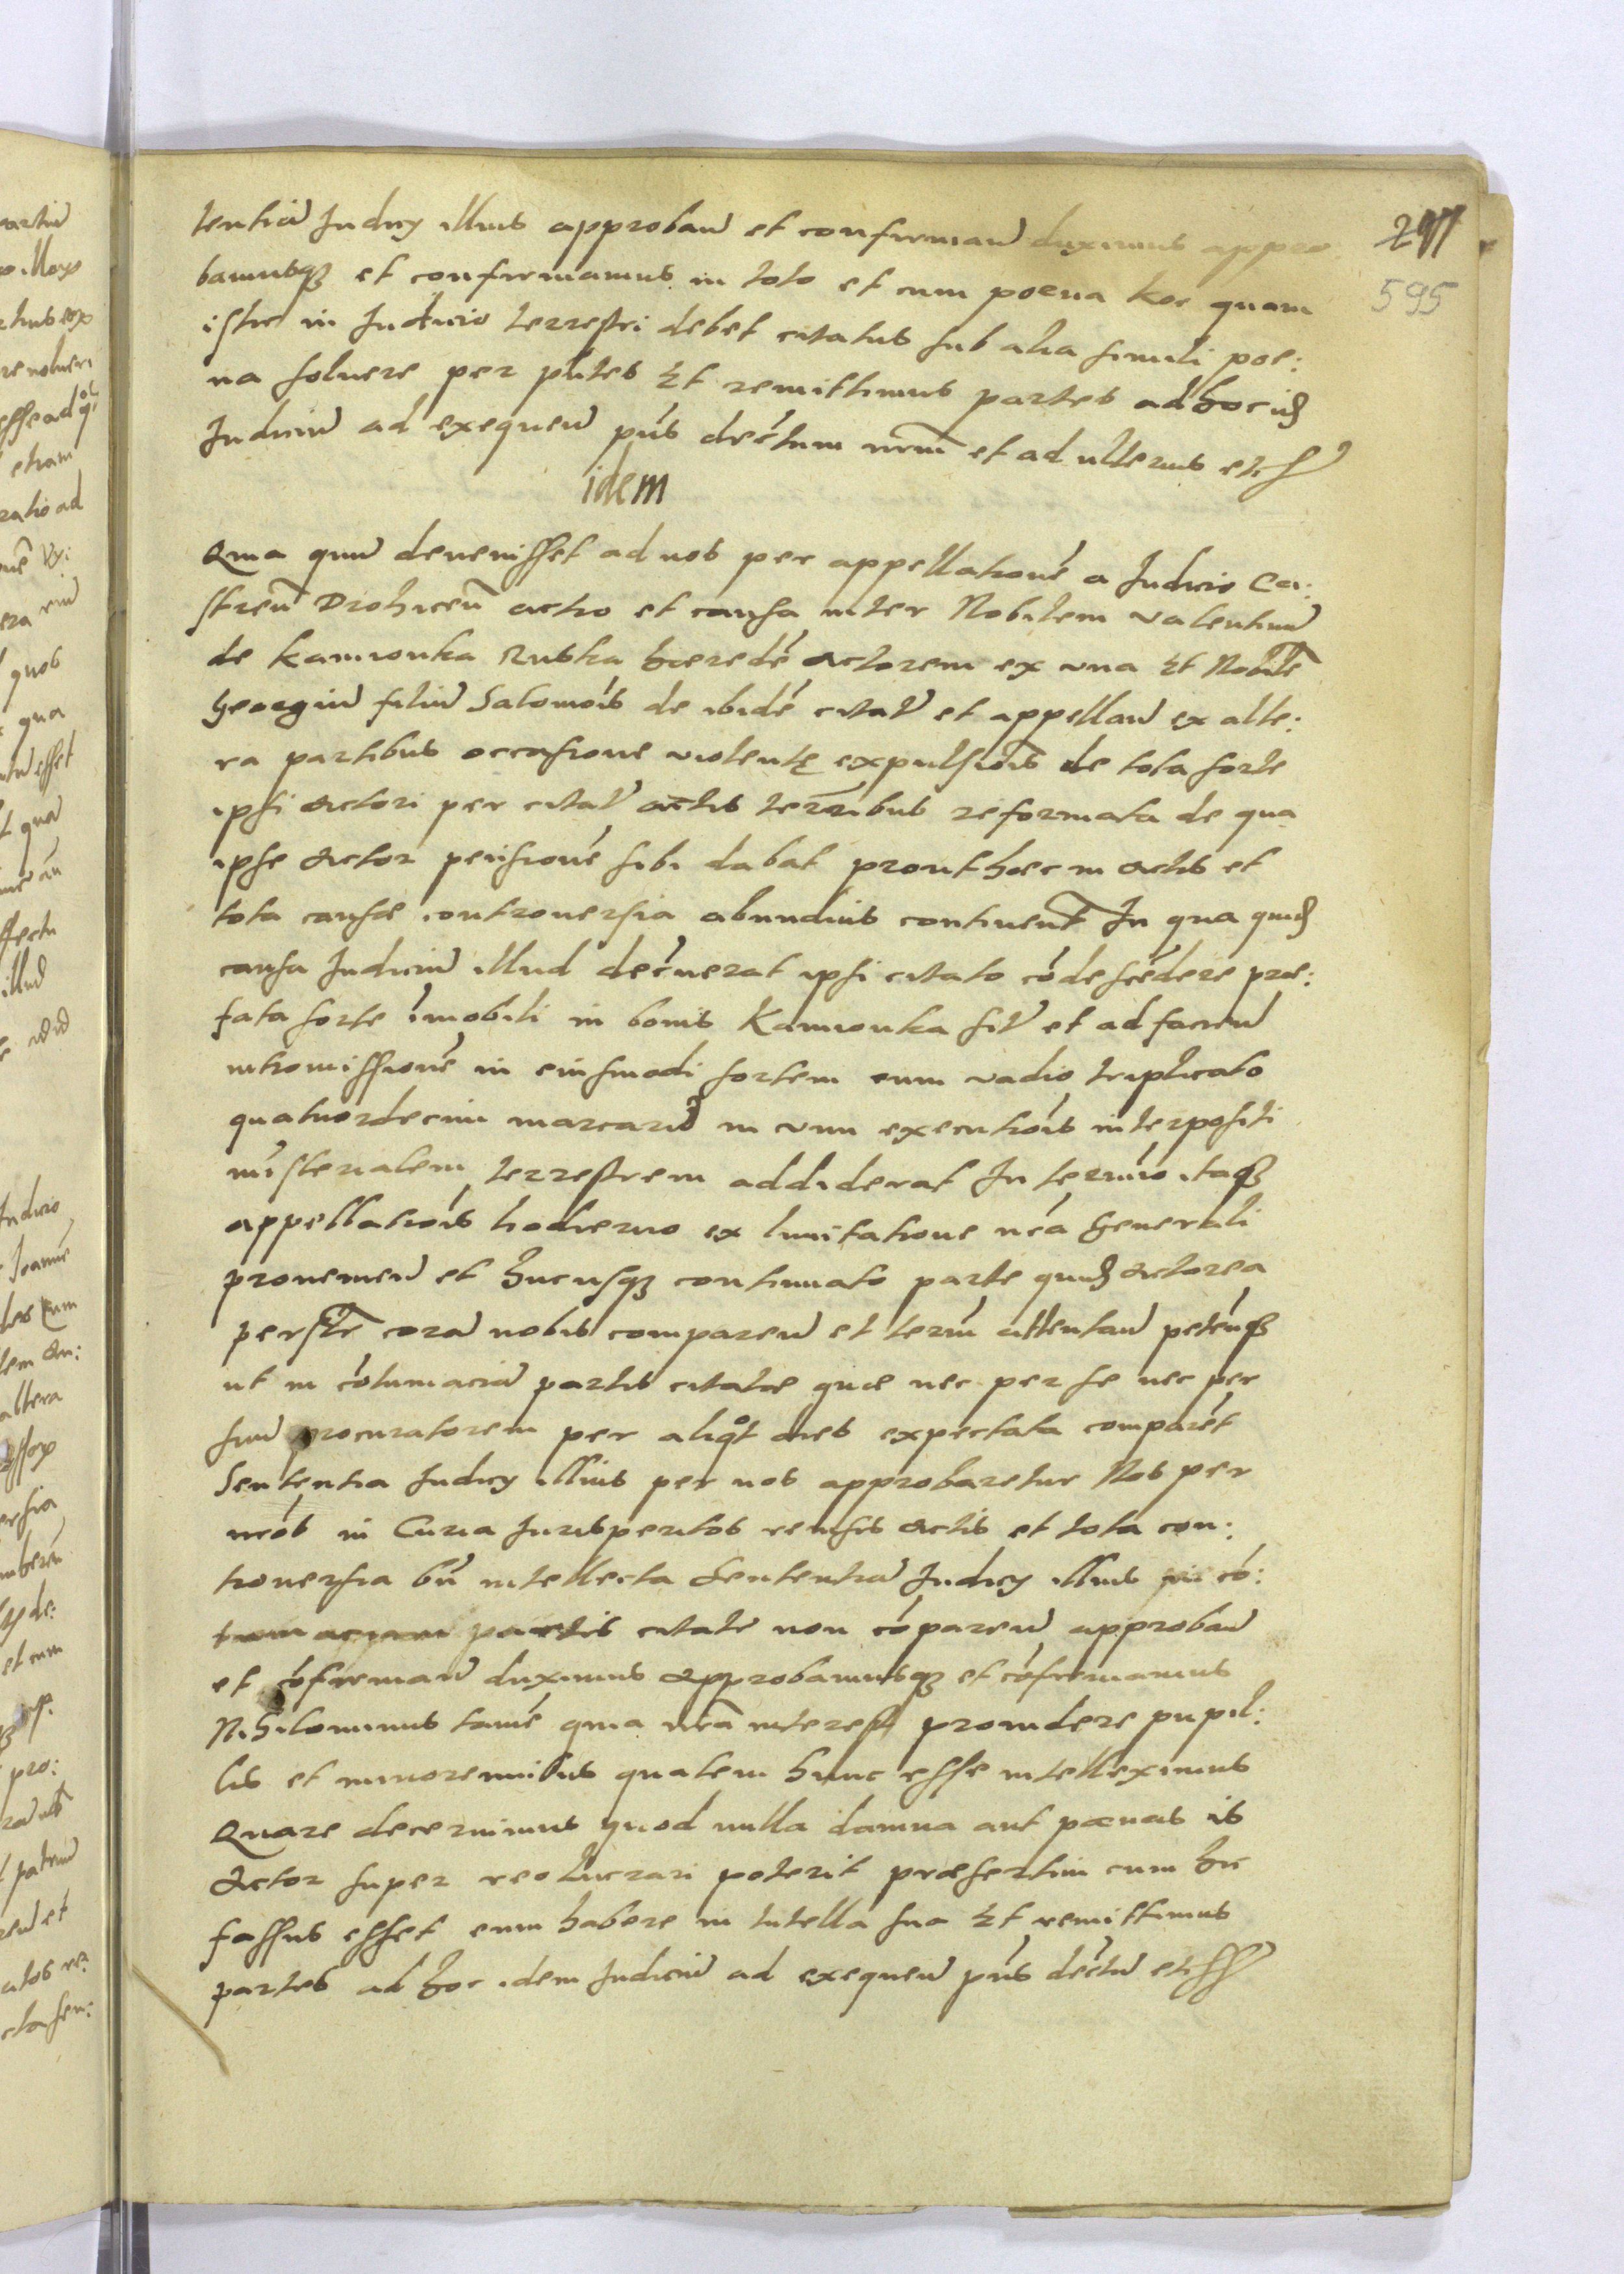 297
595
tentiã Judicÿ illius approbañ et confirmañ duximus appro
bamusqȝ et confirmamus in toto et cum poena hoc quam
istic in Judicio terrestri debet citatus sub alia simili poe:
na soluere per p̃ntes Et remittimus partes ad hoc id̃
Judiciũ ad exequeñ p̃ns decr̃tum nr̃m et ad ulterius etc
idem
Quia quũ deuenisset ad nos per appellationẽ a Judicio Ca:
streñ Drohiceñ actio et causa inter Nobilem Valentinũ
de Kamionka Ruska hæredẽ Actorem ex vna Et Nobilẽ
Georgiũ filiũ Salomõis de ibidẽ citat̃ et appellañ ex alte:
ra partibus occasione violentę expulsiõis de tota sorte
ipsi Actori per citat̃ actis terr̃ibus reformata de qua
ipse Actor pensionẽ sibi dabat prout hæc in Actis et
tota causæ controuersia abundius continent̃ In qua quid̃
causa Judiciũ illud decr̃uerat ipsi citato cõdescẽdere præ:
fata sorte ĩmobili in bonis Kamionka sit̃ et ad facieñ
intromissionẽ in eiusmodi sortem cum vadio triplicato
quatuordecim marcarũ in vim executiõis interpositi
mĩsterialem terrestrem addiderat In termĩo itaqȝ
appellatiõis hodierno ex limitatione nr̃a Generali
proueniẽn et hucusqȝ continuato parte quid̃ Actorea
perso͂lr̃ corã nobis compareñ et ter̃m attentañ petẽnqȝ
ut in cõtumaciã partis citatæ quæ nec per se nec per
suũ procuratorem per aliqͦt dies expectata comparet̃
Sententia Judicÿ illius per nos approbaretur Nos per
nr̃os in Curia Jurisperitos reuisis Actis et tota con:
trouersia bñ intellecta Sententiã Judicÿ illius in cõ:
tumaciam partis citate non cõpareñ approbañ
et cõfirmañ duximus Approbamusqȝ et cõfirmamus
Nihilominus tamẽ quia nr̃a interest prouidere pupil:
lis et minorennibus qualem hunc esse intelleximus
Quare decernimus quod nulla damna aut pœnas is
Actor super reo lucrari poterit præsertim cum hic
fassus esset eum habere in tutella sua Et remittimus
partes ad hoc idem Judiciũ ad exequeñ p̃ns decr̃tũ etc